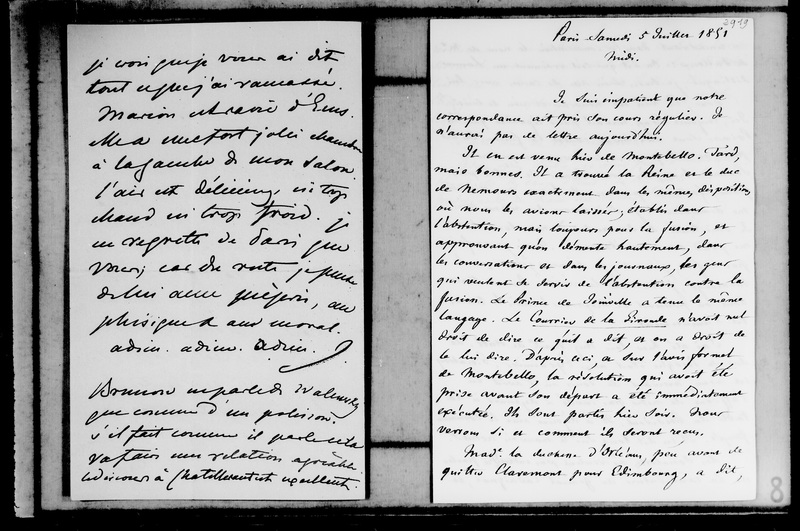 je crois que je vous ai dit
tout ce que j'ai ramassé.
Marion est ravie d'Ems.
elle a une fort jolie chambre
à la gauche de mon salon.
l'air est délicieux, ni trop
chaud ni trop froid. je
ne regrette de Paris que
vous, car du reste je pense
de lui au physique & au moral.
adieu. adieu. adieu.
Brunnow ne parle de Walewsky
que comme d'un polisson.
s'il fait comme il parle cela
va faire une relation agréable.
discours à Chatellerault excellent.
2949
Paris Samedi 5 Juillet 1851
Midi.
Je suis impatient que notre
correspondance ait pris son cours régulier. Je
n'aurai pas de lettre aujourd'hui.
Il en est venu hier de Montebello. Tard,
mais bonnes. Il a trouvé la Reine et le duc
de Nemours exactement dans les mêmes dispositions
où nous les avions laissés; établis dans
l'abstention, mais toujours pour la fusion, et
approuvant qu'on démente hautement, dans
les conversations et dans les journaux, les gens
qui veulent se servir de l'abstention contre la
fusion. Le Prince de Joinville a tenu le même
langage. Le Courrier de la Gironde n'avait nul
droit de dire ce qu'il a dit, et on a droit de
le lui dire. D'après ceci, et sur l'avis formel
de Montebello, la résolution qui avait été
prise avant son départ a été immédiatement
exécutée. Ils sont partis hier soir. Nous
verrons si et comment ils seront reçus.
Made. la duchesse d'Orléans, peu avant de
quitter Claremont pour Edimbourg, a dit,
8